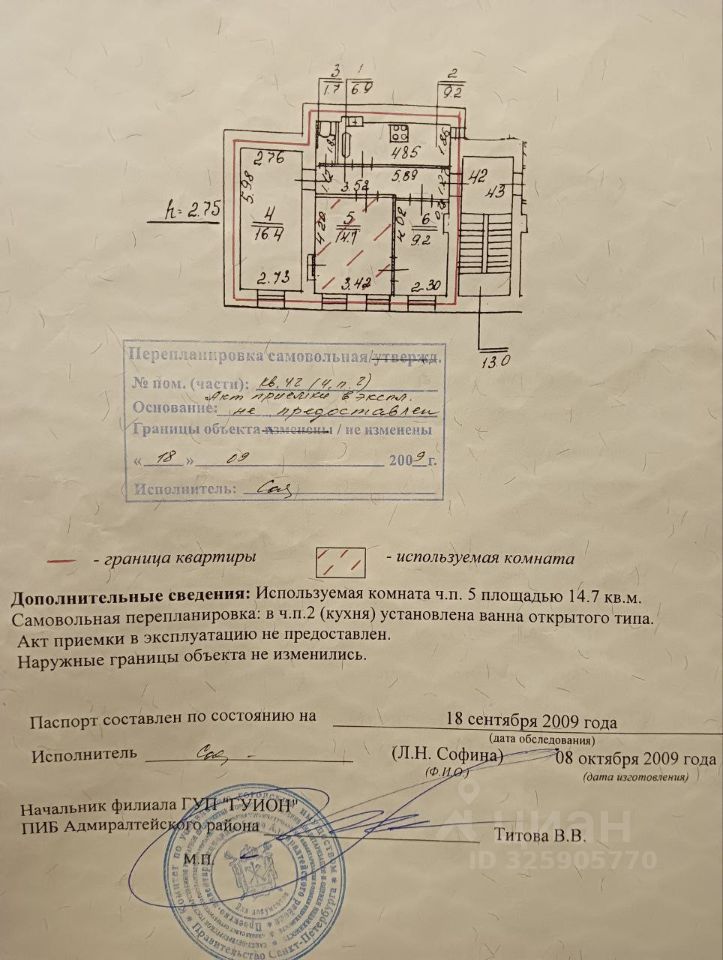 3 1 2
1.7 6.9 9.2
2.76
1.85
485
1.85
5.98
5.89
42
43
3.52
h=2.75
4
16.4
4.20
5
14.7
6
9.2
2.73
3.42
2.30
13.0
Перепланировка самовольная/утвержд.
№ пом. (части): кв. 42 (ч.п. 2)
Акт приемки в экспл.
Основание: не предоставлен
Границы объекта изменены / не изменены
« 18 » 09 2009 г.
Исполнитель:
- граница квартиры - используемая комната
Дополнительные сведения: Используемая комната ч.п. 5 площадью 14.7 кв.м.
Самовольная перепланировка: в ч.п.2 (кухня) установлена ванна открытого типа.
Акт приемки в эксплуатацию не предоставлен.
Наружные границы объекта не изменились.
Паспорт составлен по состоянию на 18 сентября 2009 года
(дата обследования)
Исполнитель (Л.Н. Софина) 08 октября 2009 года
(Ф.И.О.) (дата изготовления)
Начальник филиала ГУП "ГУИОН"
ПИБ Адмиралтейского района Титова В.В.
М.П.
циан
ID 325905770
Правительство Санкт-Петербурга